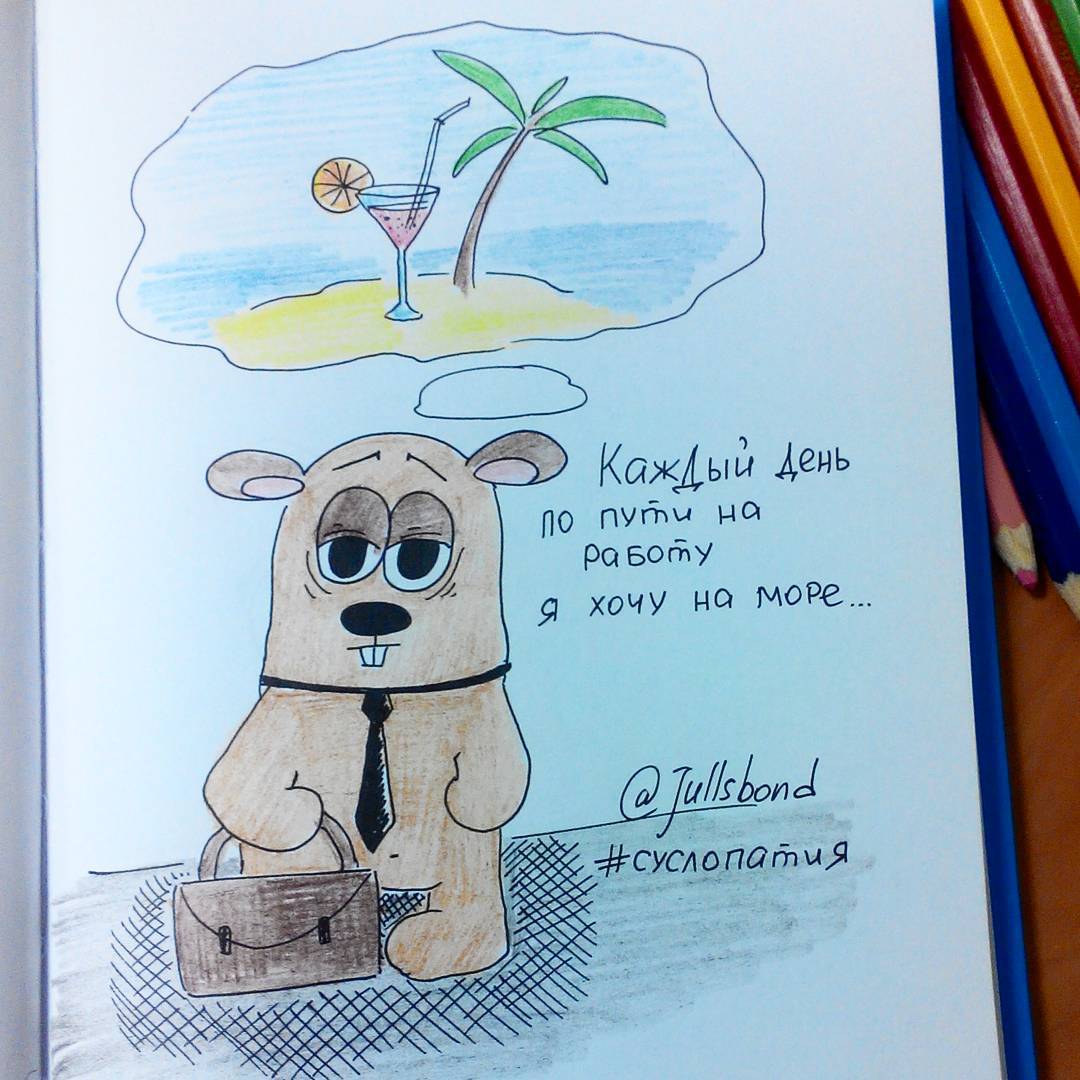 Каждый день
по пути на
работу
я хочу на море...
@Jullsbond
#суслопатия